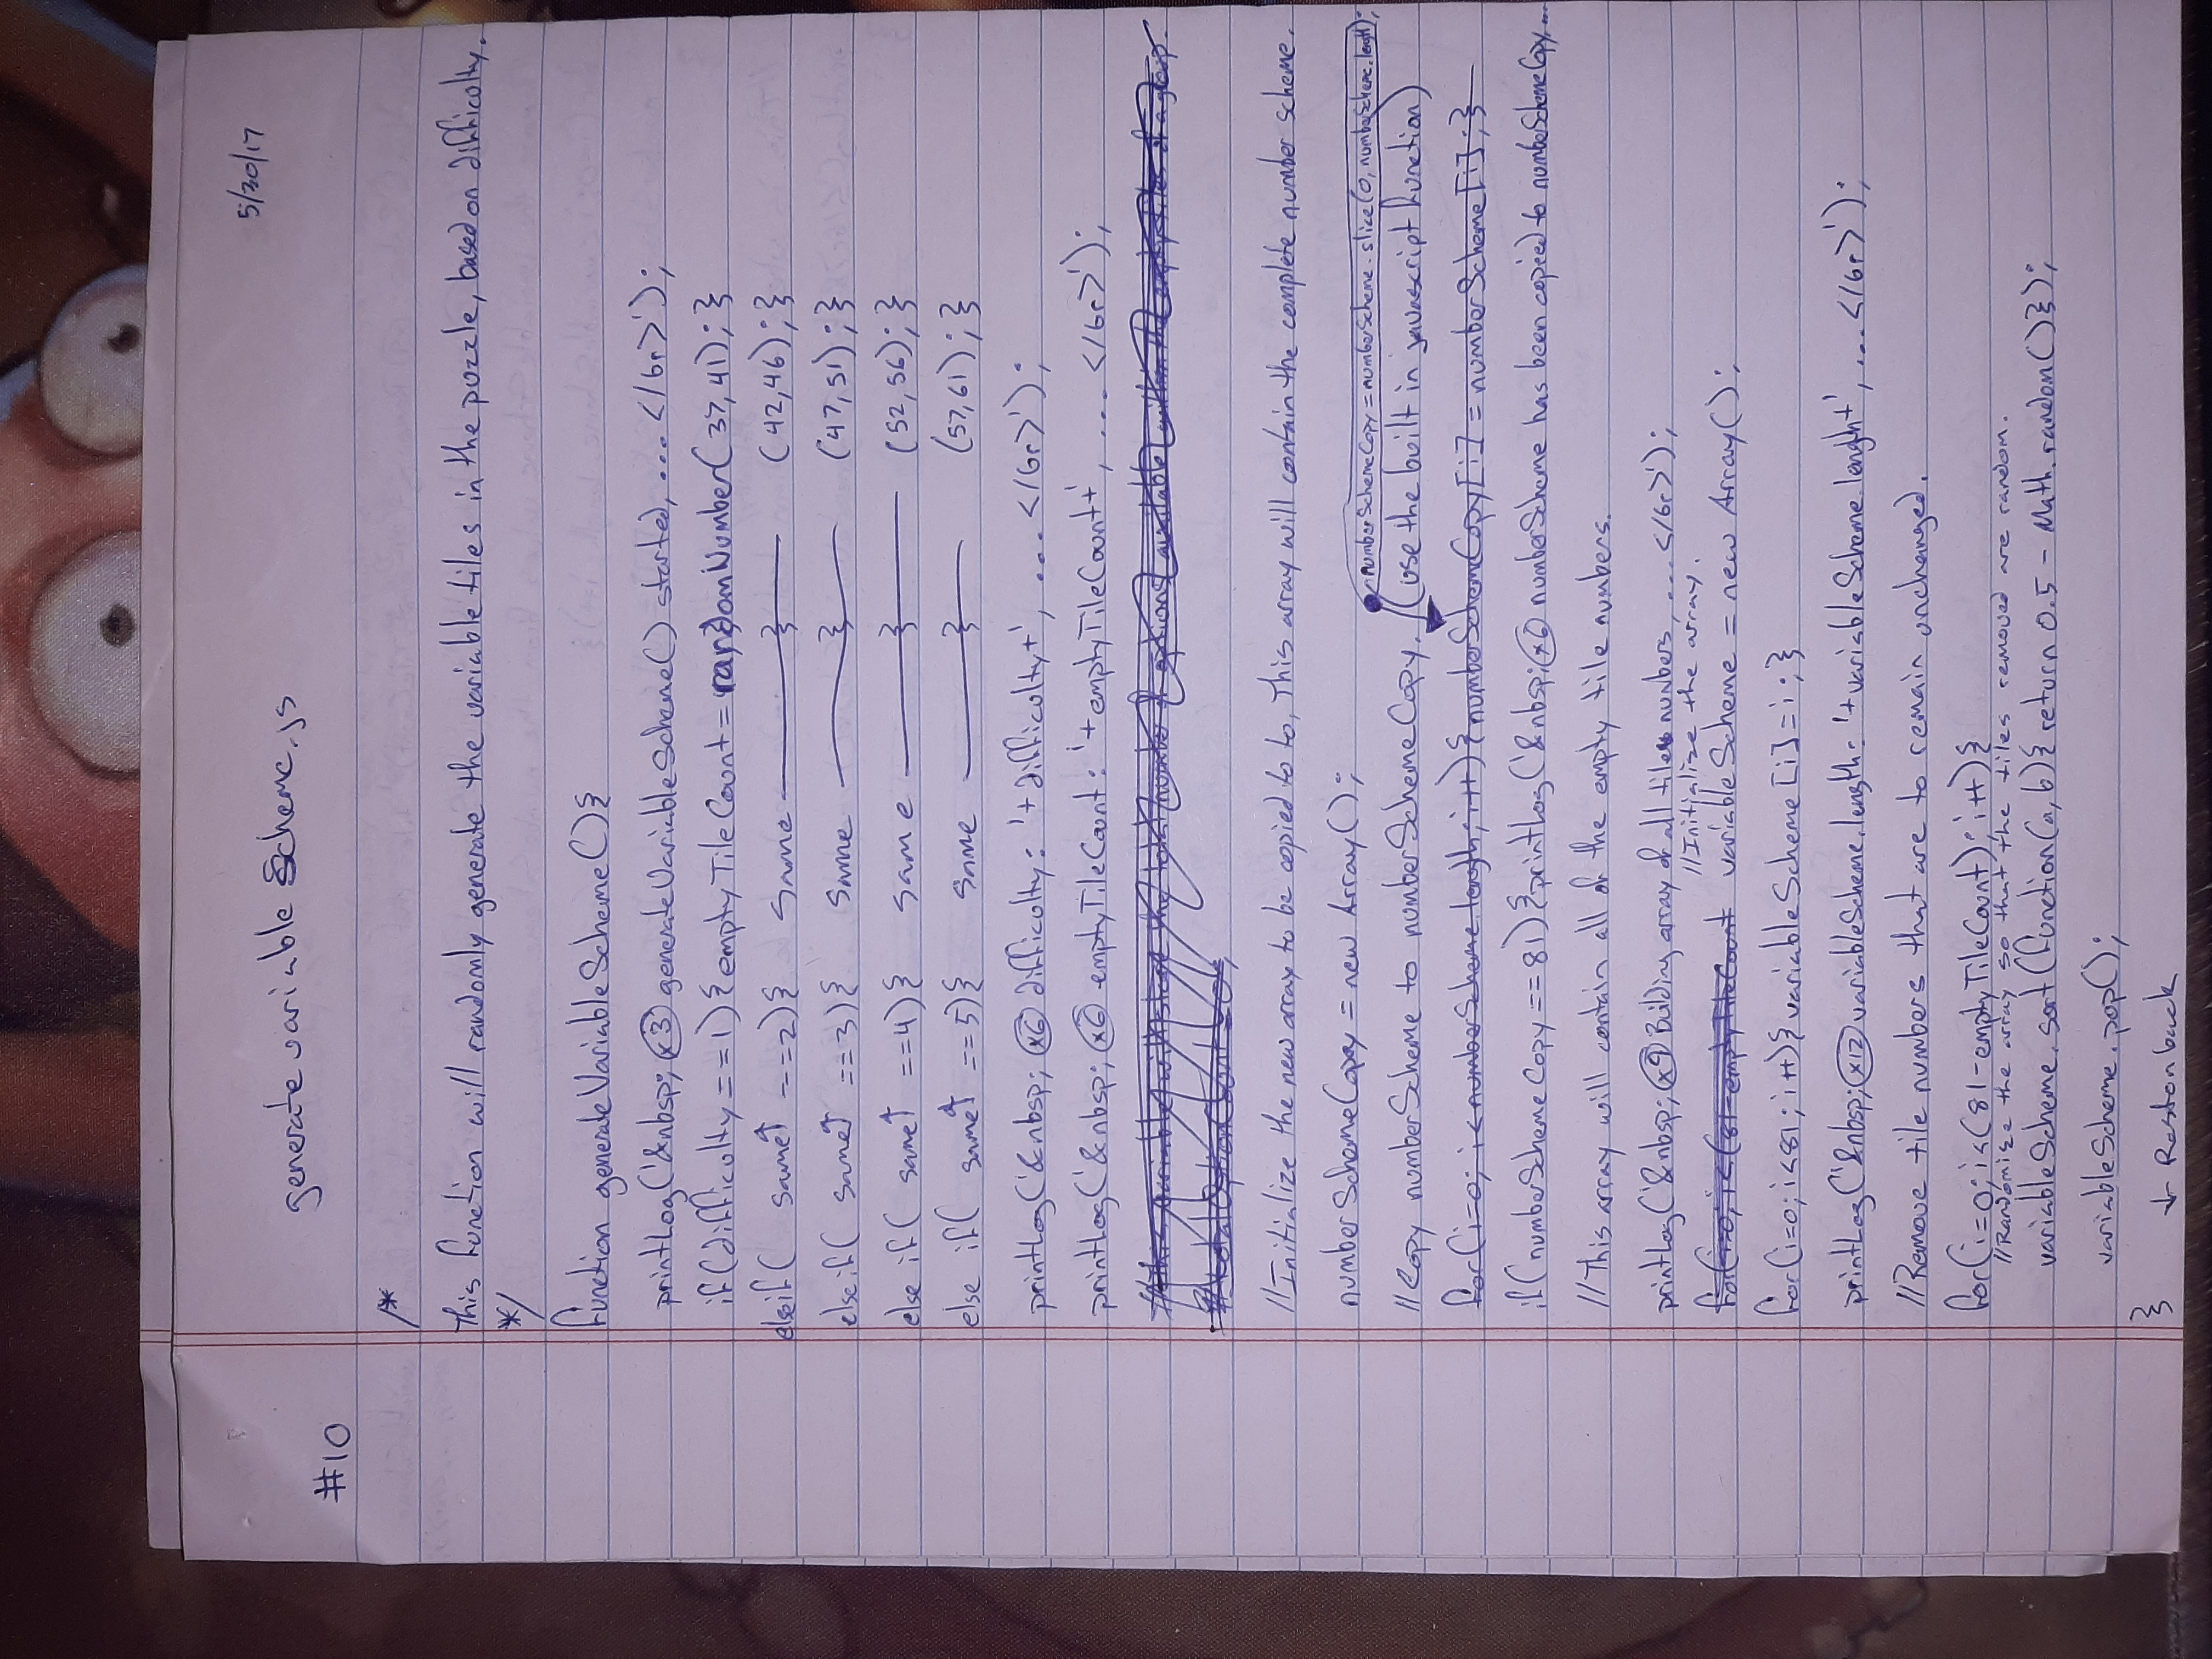 5/30/17
generate variable Scheme.js
#10
/*
This function will randomly generate the variable tiles in the puzzle, based on difficulty.
*/
function generateVariableScheme(){
printLog('&nbsp; x3 generateVariableScheme() started, ... </br>');
if(difficulty==1){emptyTileCount=randomNumber(37,41);}
else if( same↑ ==2){ same (42,46);}
else if( same↑ ==3){ same (47,51);}
else if( same↑ ==4){ same (52,56);}
else if( same↑ ==5){ same (57,61);}
printLog('&nbsp; x6 difficulty: '+difficulty+', ... </br>');
printLog('&nbsp; x6 emptyTileCount: '+emptyTileCount+', ... </br>');
//this variable will store the total number of options available within the empty tiles of a group.
//totalOptionCount=0;
//Initialize the new array to be copied to to, This array will contain the complete number scheme.
numberSchemeCopy = new Array();
numberSchemeCopy=numberScheme.slice(0,numberScheme.length);
//Copy numberScheme to numberSchemeCopy. (use the built in javascript function)
for(i=0; i<numberScheme.length; i++){numberSchemeCopy[i]=numberScheme[i];}
if(numberSchemeCopy==81){printLog('&nbsp; x6 numberScheme has been copied to numberSchemeCopy,...
//This array will contain all of the empty tile numbers.
printLog('&nbsp; x9 Building array of all tile numbers, ... </br>');
//Initialize the array.
for(i=0; i<(81-emptyTileCount variableScheme = new Array();
for(i=0; i<81; i++){variableScheme[i]=i;}
printLog('&nbsp; x12 variableScheme.length: '+variableScheme.length+', ... </br>');
//Remove tile numbers that are to remain unchanged.
for(i=0; i<(81-emptyTileCount); i++){
//Randomize the array so that the tiles removed are random.
variableScheme.sort(function(a,b){return 0.5 - Math.random()});
variableScheme.pop();
}
↓ Rest on back